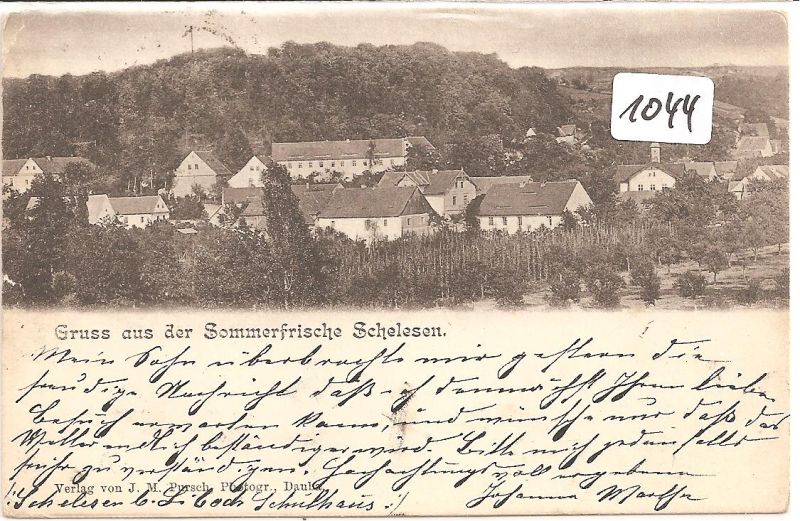 1044
Gruss aus der Sommerfrische Schelesen.
Mein Sohn überbrachte mir gestern die
freudige Nachricht daß ich demnächst Ihren lieben
Besuch erwarten kann, und wünsche nur daß das
Wetter endlich beständiger wird. Bitte mich jedenfalls
früher zu verständigen. Hochachtungsvoll ergebene
Verlag von J. M. Pursch, Photogr., Dauba.
Johanna
Schelesen b. Liboch Schulhaus